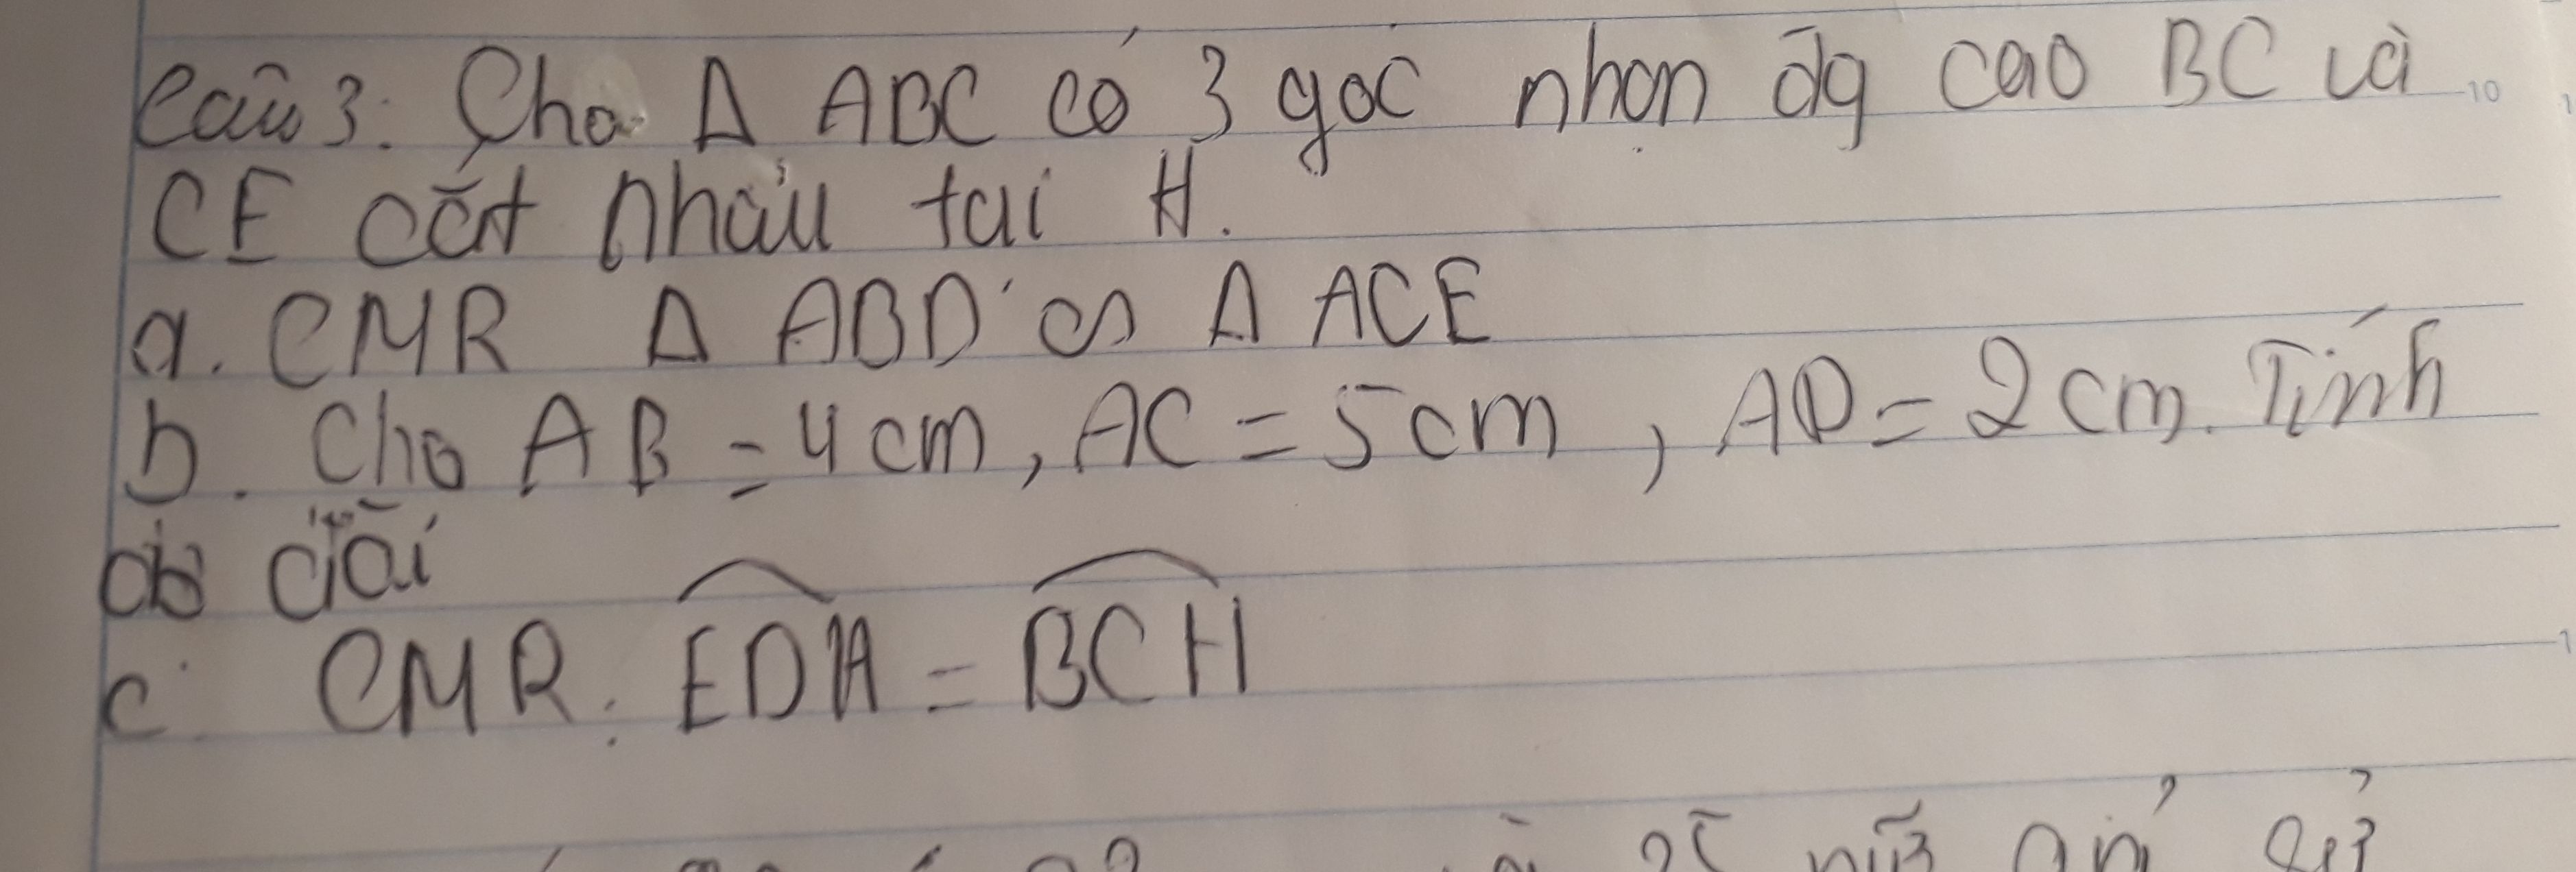 Câu 3: Cho Δ ABC có 3 góc nhọn đg cao BC và
CE cắt nhau tại H.
a. CMR Δ ABD ∽ Δ ACE
b. Cho AB = 4cm, AC = 5cm, AD = 2cm. Tính
độ dài
c. CMR: EDH = BCH